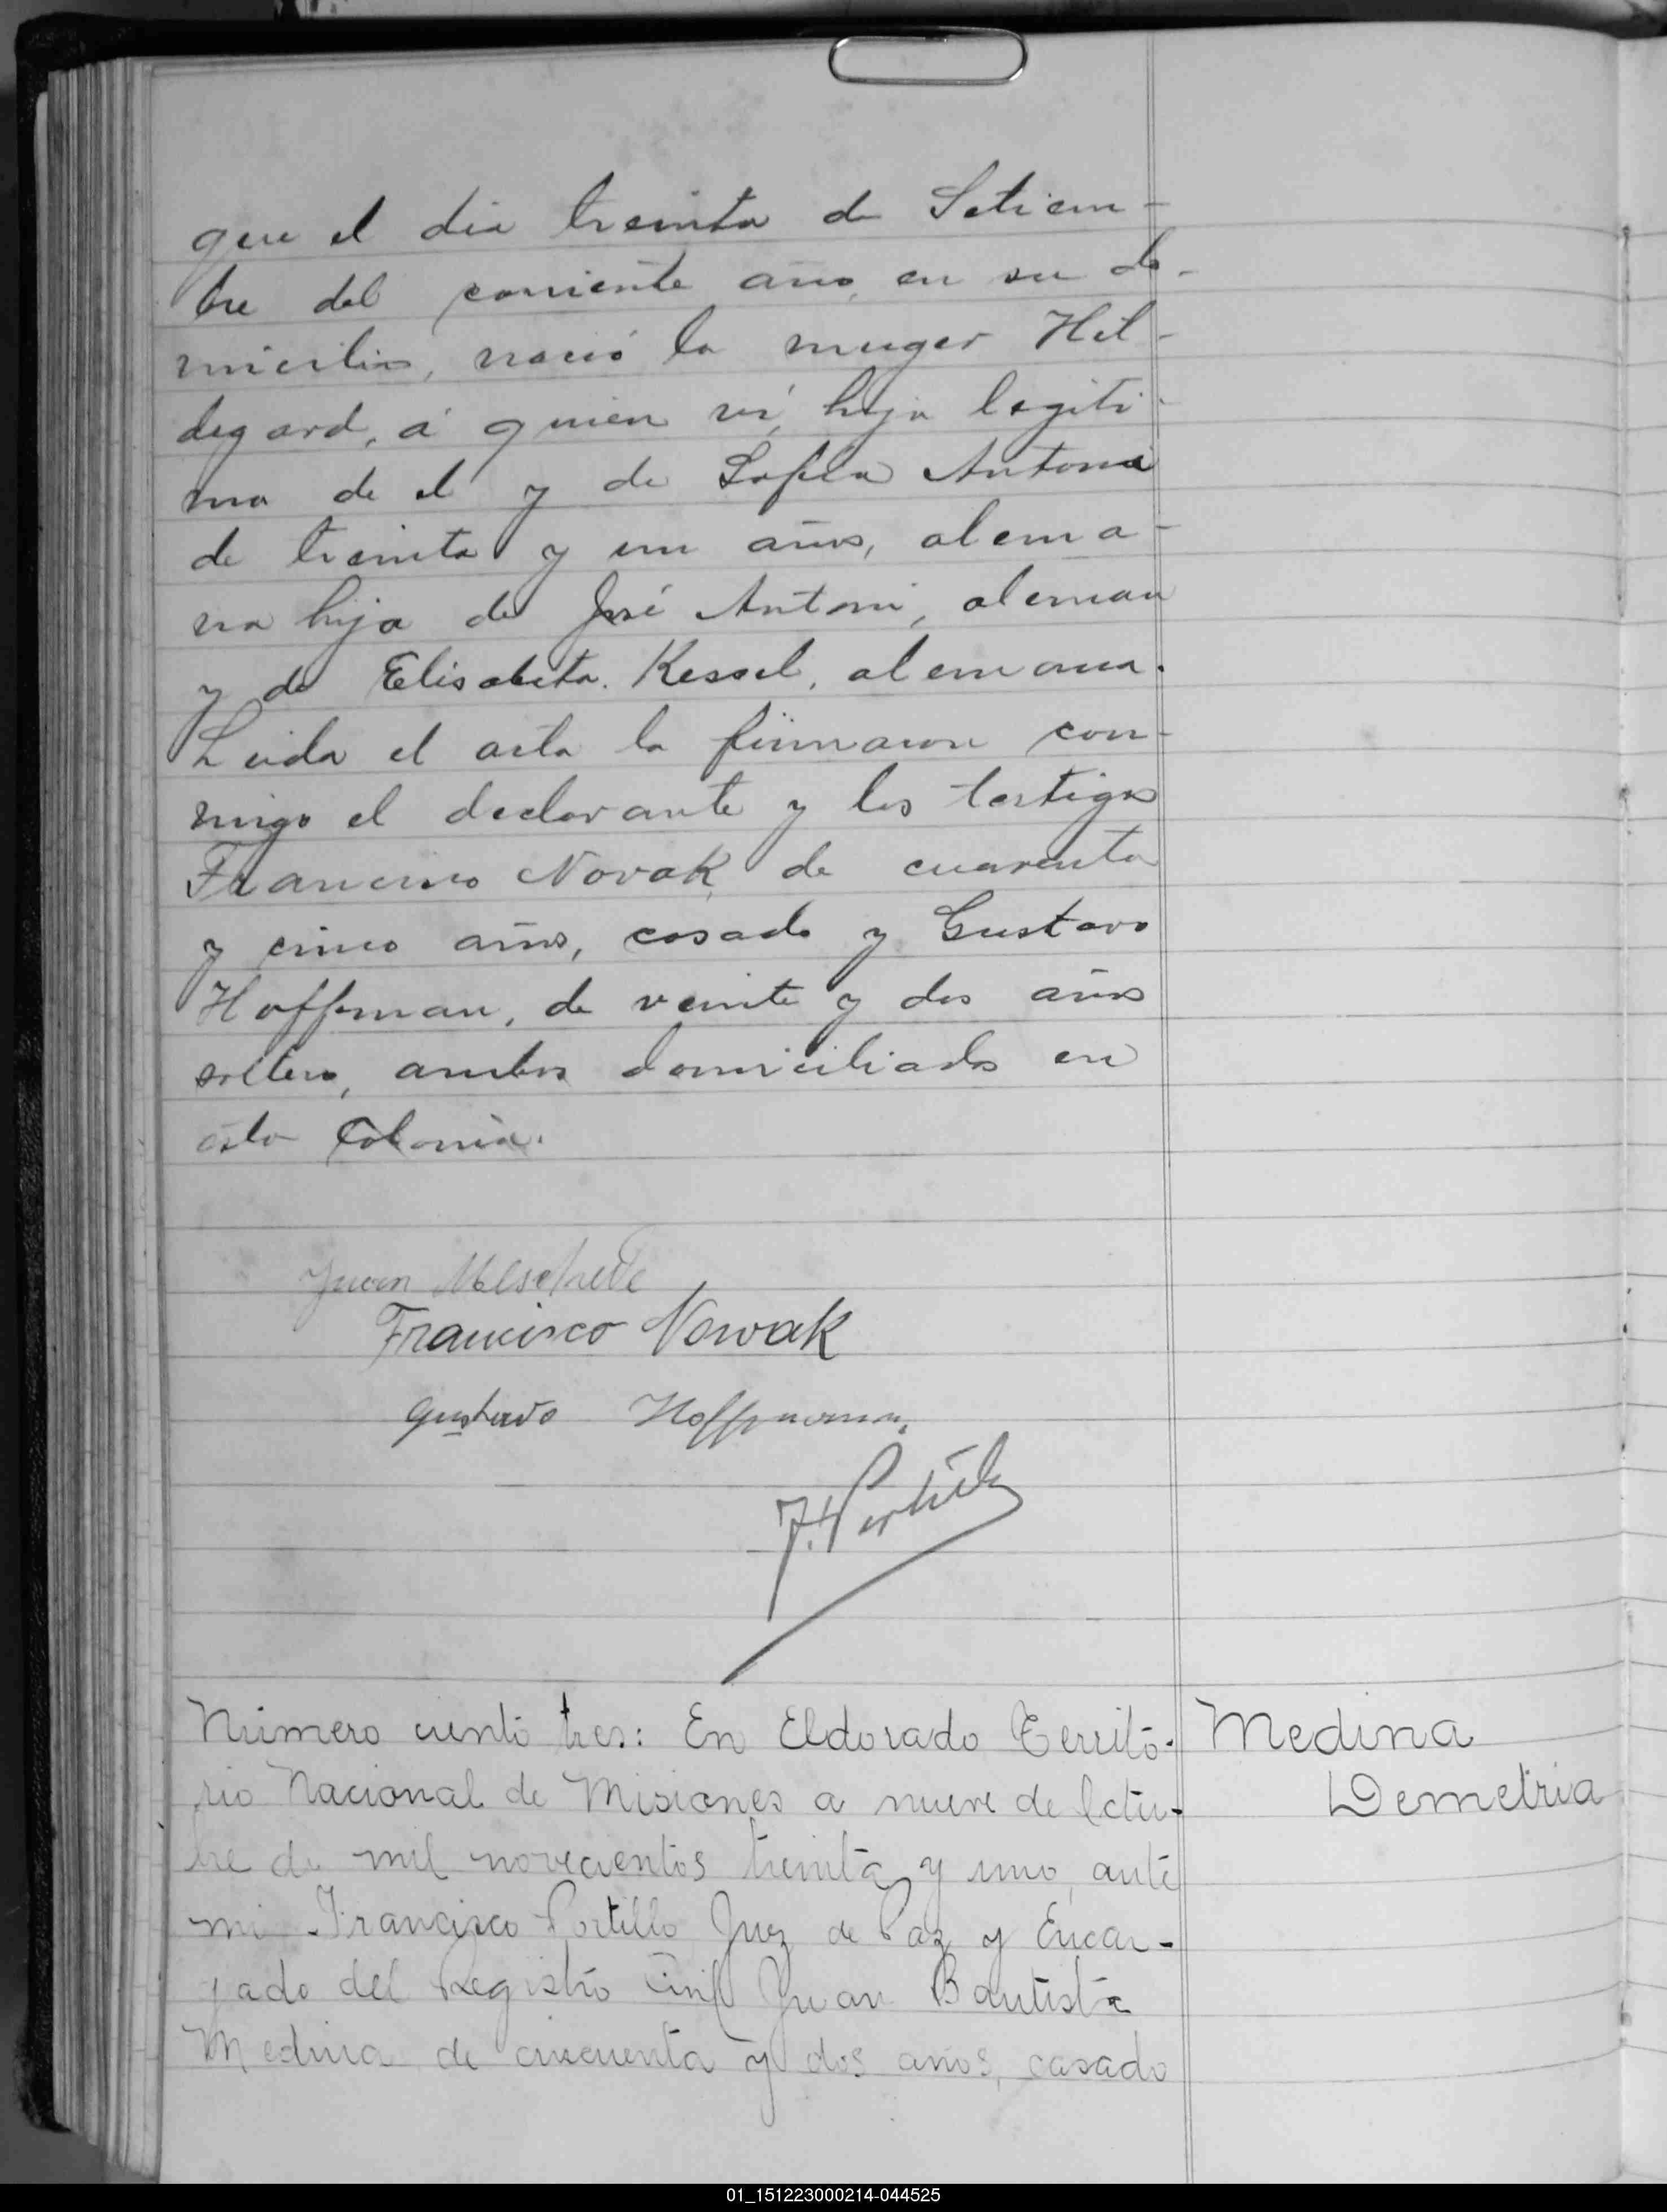 que el dia treinta de Setiem-
bre del corriente año, en su do-
micilio, nació la muger Hil-
degard, á quien ví, hija legiti-
ma de el y de Sofia Antoni
de treinta y un años, alema-
na hija de José Antoni, aleman
y de Elisabeta Kessel, alemana.
Leida el acta la firmaron con-
migo el declarante y los testigos
Francisco Novak de cuarenta
y cinco años, casado y Gustavo
Hoffman, de veinte y dos años
soltero, ambos domiciliados en
esta Colonia.
Juan
Francisco Nowak
Gustavo Hoffmann,
F. Portillo
Número ciento tres: En Eldorado Territo-
rio Nacional de Misiones a nueve de Octu-
bre de mil novecientos treinta y uno, ante
mi Francisco Portillo Juez de Paz y Encar-
gado del Registro Civil Juan Bautista
Medina de cincuenta y dos años, casado
Medina
Demetria
01_151223000214-044525